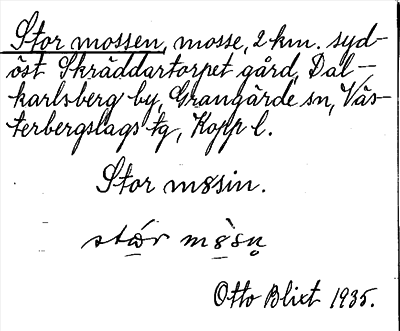 Stor mossen, mosse, 2 km. syd-
öst Skräddartorpet gård, Dal-
karlsberg by, Grangärde sn, Väs-
terbergslags tg, Kopp l.
Stor m8sin.
stár m8̀sn̥
Otto Blixt 1935.